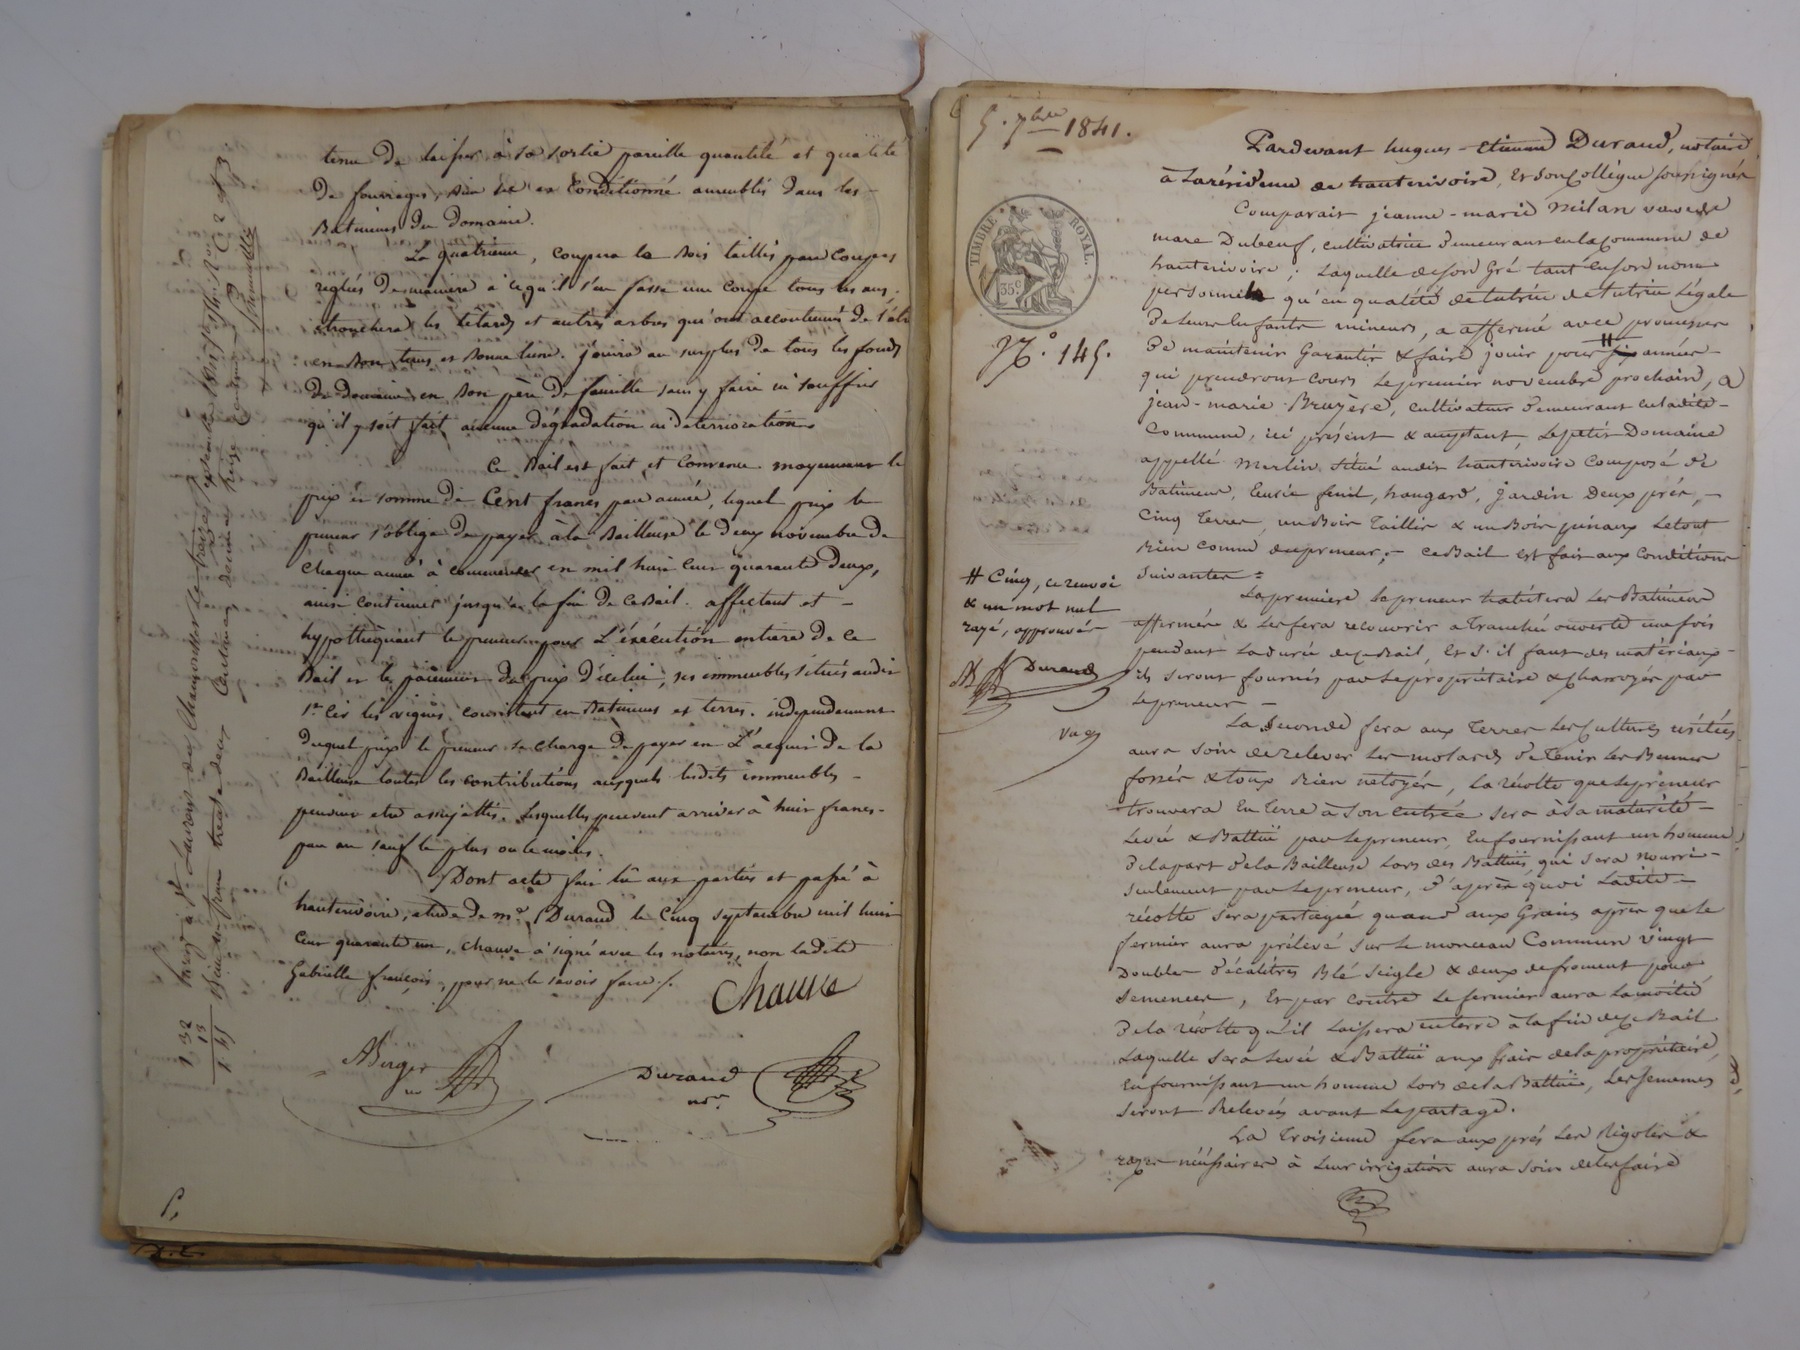 tenu de laisser à sa sortie pareille quantité et qualité
de fourrages, bien sec et conditionné ameublés dans les
Batiments du domaine.
La quatrieme, coupera le bois taillis par coupes
réglées de maniere à ce qu'il s'en fasse une coupe tous les ans,
étronchera les tetards et autres arbres qui ont accoutumés de l'étre
en bon tems et bonne lune. jouira au surplus de tous les fonds
du domaine en bon père de famille sans y faire ni souffrir
qu'il y soit fait aucune dégradation ni déterrioration.
Ce Bail est fait et convenu moyennant le
prix et somme de Cent francs par année, lequel prix le
preneur s'oblige de payer à la Bailleuse le deux novembre de
chaque année à commencer en mil huit cent quarante deux,
ainsi continuer jusqu'à la fin de ce Bail. affectant et
hypothéquant le preneur pour L'éxécution entiere de ce
Bail et le paiement du prix d'icelui, ses immeubles situés audit
St Cir les vignes consistant en Batiments et terres. independament
duquel prix le preneur se charge de payer en L'acquit de la
Bailleuse toutes les contributions auxquels lesdits immeubles
peuvent etre assujettis, lesquelles peuvent arriver à huit francs
par an sauf le plus ou le moins.
Dont acte fait lû aux parties et passé à
hauterivoire, etude de Me Durand le Cinq septembre mil huit
cent quarante un, Chauve à signé avec les notaires, non ladite
Gabrielle françois, pour ne le savoir faire /.
Chauve
ABerger
Durand
nore
1, 32
13
1, 45
5. 7bre 1841.
TIMBRE ROYAL.
35c
No. 145.
Pardevant hugues-Etienne Durand, notaire
à Larésidence de hauterivoire, Et son Collègue soussignés
Comparait jeanne-marie Milan veuve de
marc Dubeuf, cultivatrice demeurant en la Commune de
hauterivoire; Laquelle de son Gré tant en son nom
personnel qu'en qualité de tutrice de tutrice Légale
de leurs Enfants mineurs, a affermé avec promesse
de maintenir Garantir & faire jouir pour # six années
qui prendront cours Le premier novembre prochain, a
jean-marie Bruyère, cultivateur demeurant en ladite
Commune, ici présent & acceptant, Le petit Domaine
appellé Merlin situé audit hauterivoire Composé de
Batiments, Ecurie fenil, hangard, jardin Deux prés,
Cinq Terres, un Bois Taillis & un Bois pinaux Le tout
Bien Connu du preneur; ce Bail est fait aux Conditions
suivantes =
# Cinq, ce renvoi
& un mot nul
rayé, approuvés
Durand
La premiere Le preneur habitera Les Batiments
affermés & Les fera recouvrir a tranché ouverte une fois
pendant La durée de ce Bail, Et s'il faut des matériaux
ils seront fournis par Le propriétaire & charroyés par
Le preneur
La Seconde fera aux Terres Les Cultures usitées
aura soin de relever Les molards de Tenir Les Bennes
fossés & toux Bien netoyés, La récolte que Le preneur
trouvera En Terre à son entrée sera à sa maturité
Levée & Battüe par Le preneur, En fournissant un homme
de la part de la Bailleuse Lors des Battües, qui sera nourri
seulement par Le preneur, d'après quoi Ladite
récolte sera partagée quand aux Grains après que Le
fermier aura prélévé sur Le monceau Commun vingt
Doubles décalitres Blé seigle & deux de froment pour
semences, Et par contre Le fermier aura La moitié
de la récolte qu'il Laissera en terre à la fin de ce Bail
Laquelle sera Levée & Battüe aux frais de la propriétaire,
En fournissant un homme Lors de la Battüe, Les semences
seront Relevées avant Le partage.
La Troisieme fera aux prés Les Rigoles &
rases nécéssaires à Leur irrigation aura soin de les faire